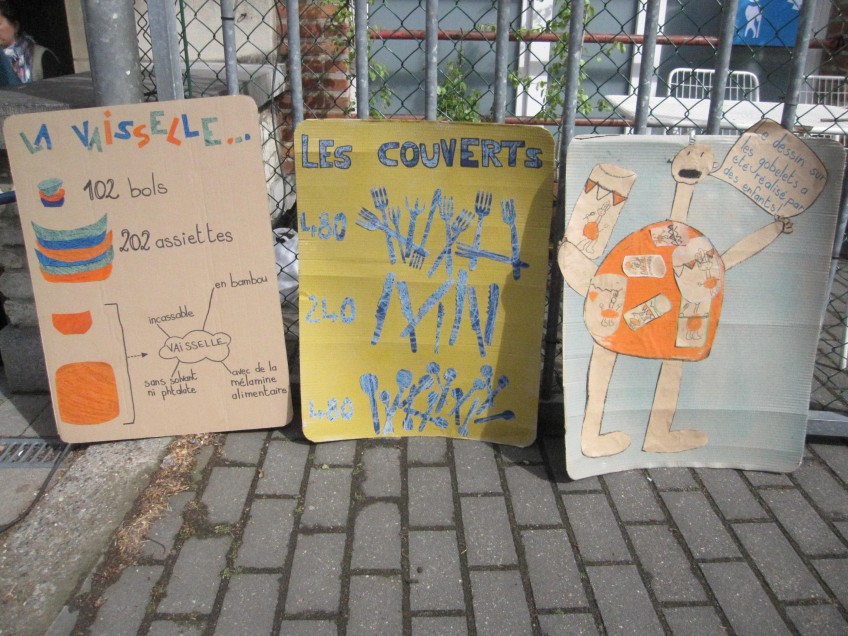 LA VAISSELLE...
102 bols
202 assiettes
en bambou
incassable
VAISSELLE
sans solvant
ni phtalate
avec de la
mélamine
alimentaire
LES COUVERTS
480
240
480
Le dessin sur
les gobelets a
été réalisé par
des enfants!